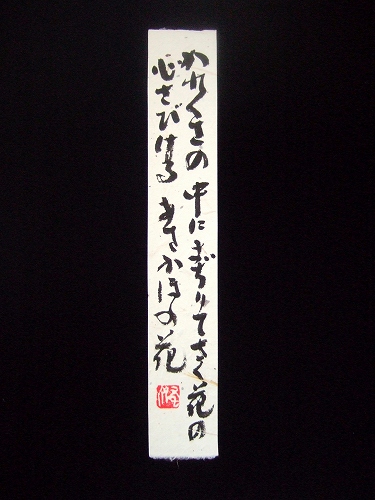 かれくさの 中にまぢりてさく花の
心さびける あさかほの花